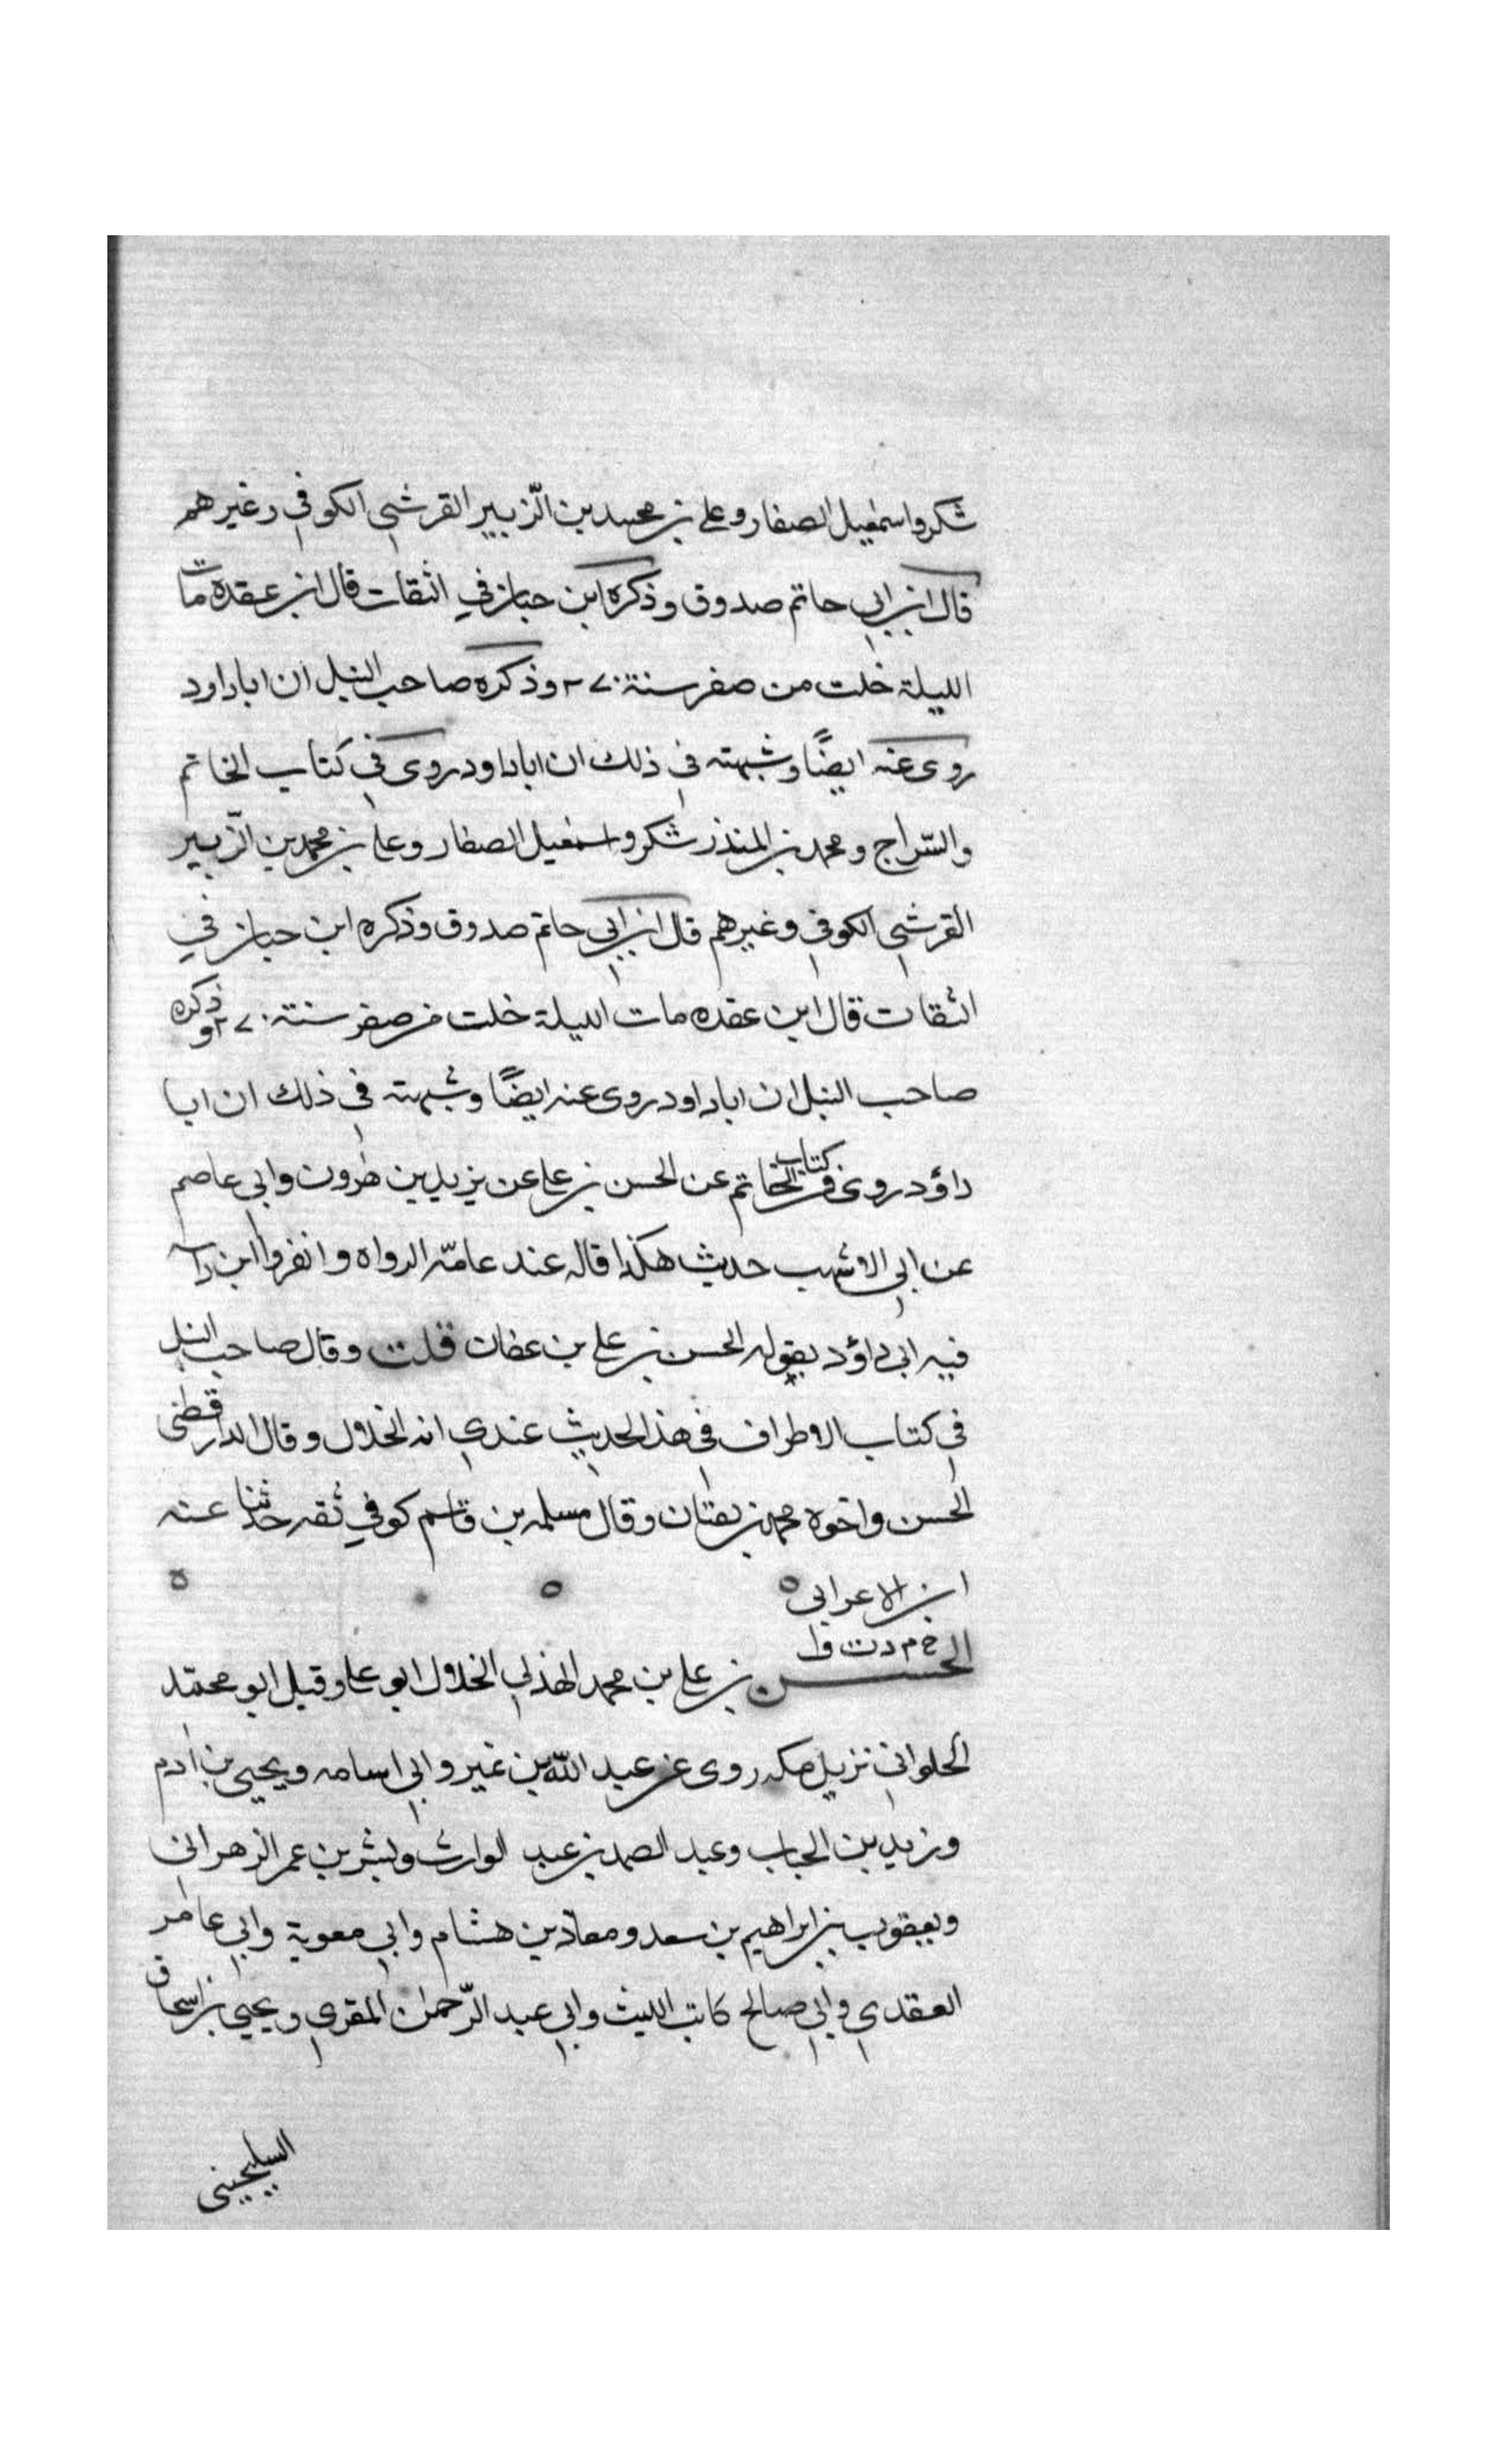 شكر واسمعيل الصفار وعلي بن محمد بن الزّبير القرشي الكوفي وغيرهم
قال ابن ابي حاتم صدوق وذكره ابن حبان في الثقات قال ابن عقده مات
لليلة خلت من صفر سنة ٢٧٠ وذكره صاحب النبل ان اباداود
روى عنه ايضًا وشبهته في ذلك ان اباداود روى في كتاب الخاتم
والسّراج ومحمد بن المنذر شكر واسمعيل الصفار وعلي بن محمد بن الزّبير
القرشي الكوفي وغيرهم قال ابن ابي حاتم صدوق وذكره ابن حبان في
الثقات قال ابن عقده مات لليلة خلت من صفر سنة ٢٧٠ وذكره
صاحب النبل ان اباداود روى عنه ايضًا وشبهته في ذلك ان ابا
داؤد روى في كتاب الخاتم عن الحسن بن علي عن يزيد بن هرون وابي عاصم
عن ابي الاشهب حديث هكذا قاله عند عامّه الرواه وانفرد ابن داسه
فيه ابي داؤد بقوله الحسن بن علي بن عفان قلت وقال صاحب النبل
في كتاب الاطراف في هذ الحديث عندي انه الخلال وقال الدارقطني
الحسن واخوه محمد ثقتان وقال مسلمه بن قاسم كوفي ثقه حدثنا عنه
ابن الاعرابي ه ه ه
خ م د ت ق
الحسن بن علي بن محمد الهذلي الخلال ابو علي وقيل ابو محمّد
الحلواني نزيل مكه روى عن عبد الله بن نمير وابي اسامه ويحيى بن ادم
وزيد بن الحباب وعبد الصمد بن عبد الوارث وبشر بن عمر الزهراني
ويعقوب بن ابراهيم بن سعد ومعاذ بن هشام وابي معوية وابي عامر
العقدي وابي صالح كاتب الليث وابي عبد الرّحمن المقري ويحيى بن اسحاق
السيلحيني